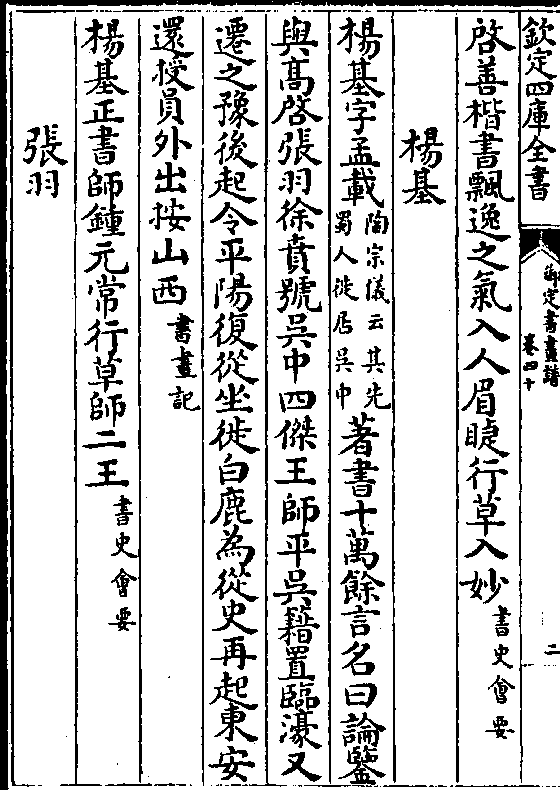 欽定四庫全書
御定書畫譜
卷四十
二
啓善楷書飄逸之氣入人眉睫行草入妙書史會要
楊基
楊基字孟載陶宗儀云其先蜀人徙居吳中著書十萬餘言名曰論鑒
與高啓張羽徐賁號吳中四傑王師平吳籍置臨濠又
遷之豫後起令平陽復從坐徙白鹿為從史再起東安
還授員外出按山西書畫記
楊基正書師鍾元常行草師二王書史會要
張羽